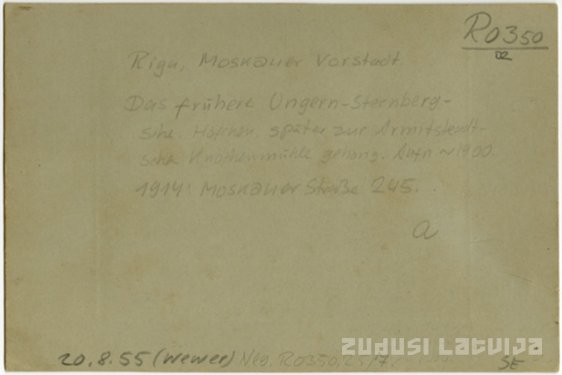 R0350
02
Riga, Moskauer Vorstadt.
Das frühere Ungern-Sternberg-
sche Höfchen, später zur Armitstedt-
sche Knochenmühle gehörig. Aufn. ~1900.
1914: Moskauer Straße 245.
a
20.8.55 (Wewer) Neg. R0350,2:17.
SE
ZUDUSI LATVIJA